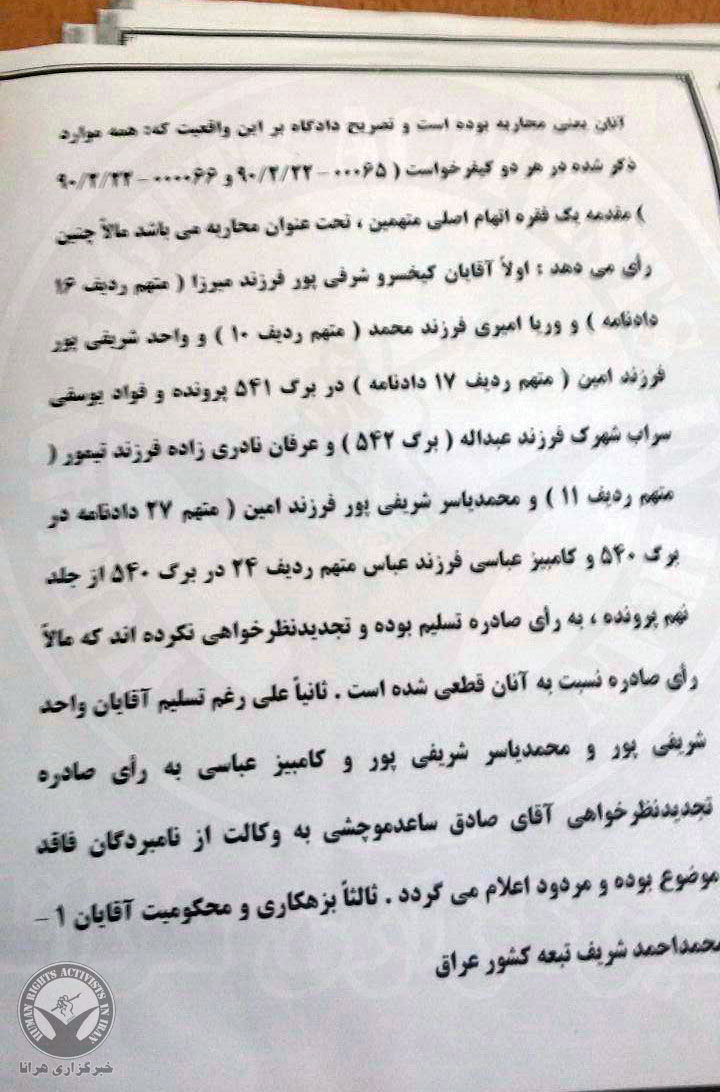 آنان یعنی محاربه بوده است و تصریح دادگاه بر این واقعیت که: همه موارد
ذکر شده در هر دو کیفرخواست ( ۰۰۰۶۵ – ۹۰/۲/۲۲ و ۰۰۰۰۶۶ – ۹۰/۲/۲۲
) مقدمه یک فقره اتهام اصلی متهمین ، تحت عنوان محاربه می باشد مالاً چنین
رأی می دهد : اولاً آقایان کیخسرو شرفی پور فرزند میرزا ( متهم ردیف ۱۶
دادنامه ) و وریا امیری فرزند محمد ( متهم ردیف ۱۰ ) و واحد شریفی پور
فرزند امین ( متهم ردیف ۱۷ دادنامه ) در برگ ۵۴۱ پرونده و فواد یوسفی
سراب شهرک فرزند عبداله ( برگ ۵۴۲ ) و عرفان نادری زاده فرزند تیمور (
متهم ردیف ۱۱ ) و محمدیاسر شریفی پور فرزند امین ( متهم ۲۷ دادنامه در
برگ ۵۴۰ و کامبیز عباسی فرزند عباس متهم ردیف ۲۴ در برگ ۵۴۰ از جلد
نهم پرونده ، به رأی صادره تسلیم بوده و تجدیدنظرخواهی نکرده اند که مالاً
رأی صادره نسبت به آنان قطعی شده است . ثانیاً علی رغم تسلیم آقایان واحد
شریفی پور و محمدیاسر شریفی پور و کامبیز عباسی به رأی صادره
تجدیدنظرخواهی آقای صادق ساعدموچشی به وکالت از نامبردگان فاقد
موضوع بوده و مردود اعلام می گردد . ثالثاً بزهکاری و محکومیت آقایان ۱ –
محمداحمد شریف تبعه کشور عراق
HUMAN RIGHTS ACTIVISTS IN IRAN
خبرگزاری هرانا